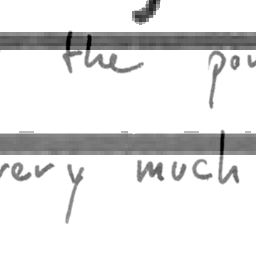 the
very much